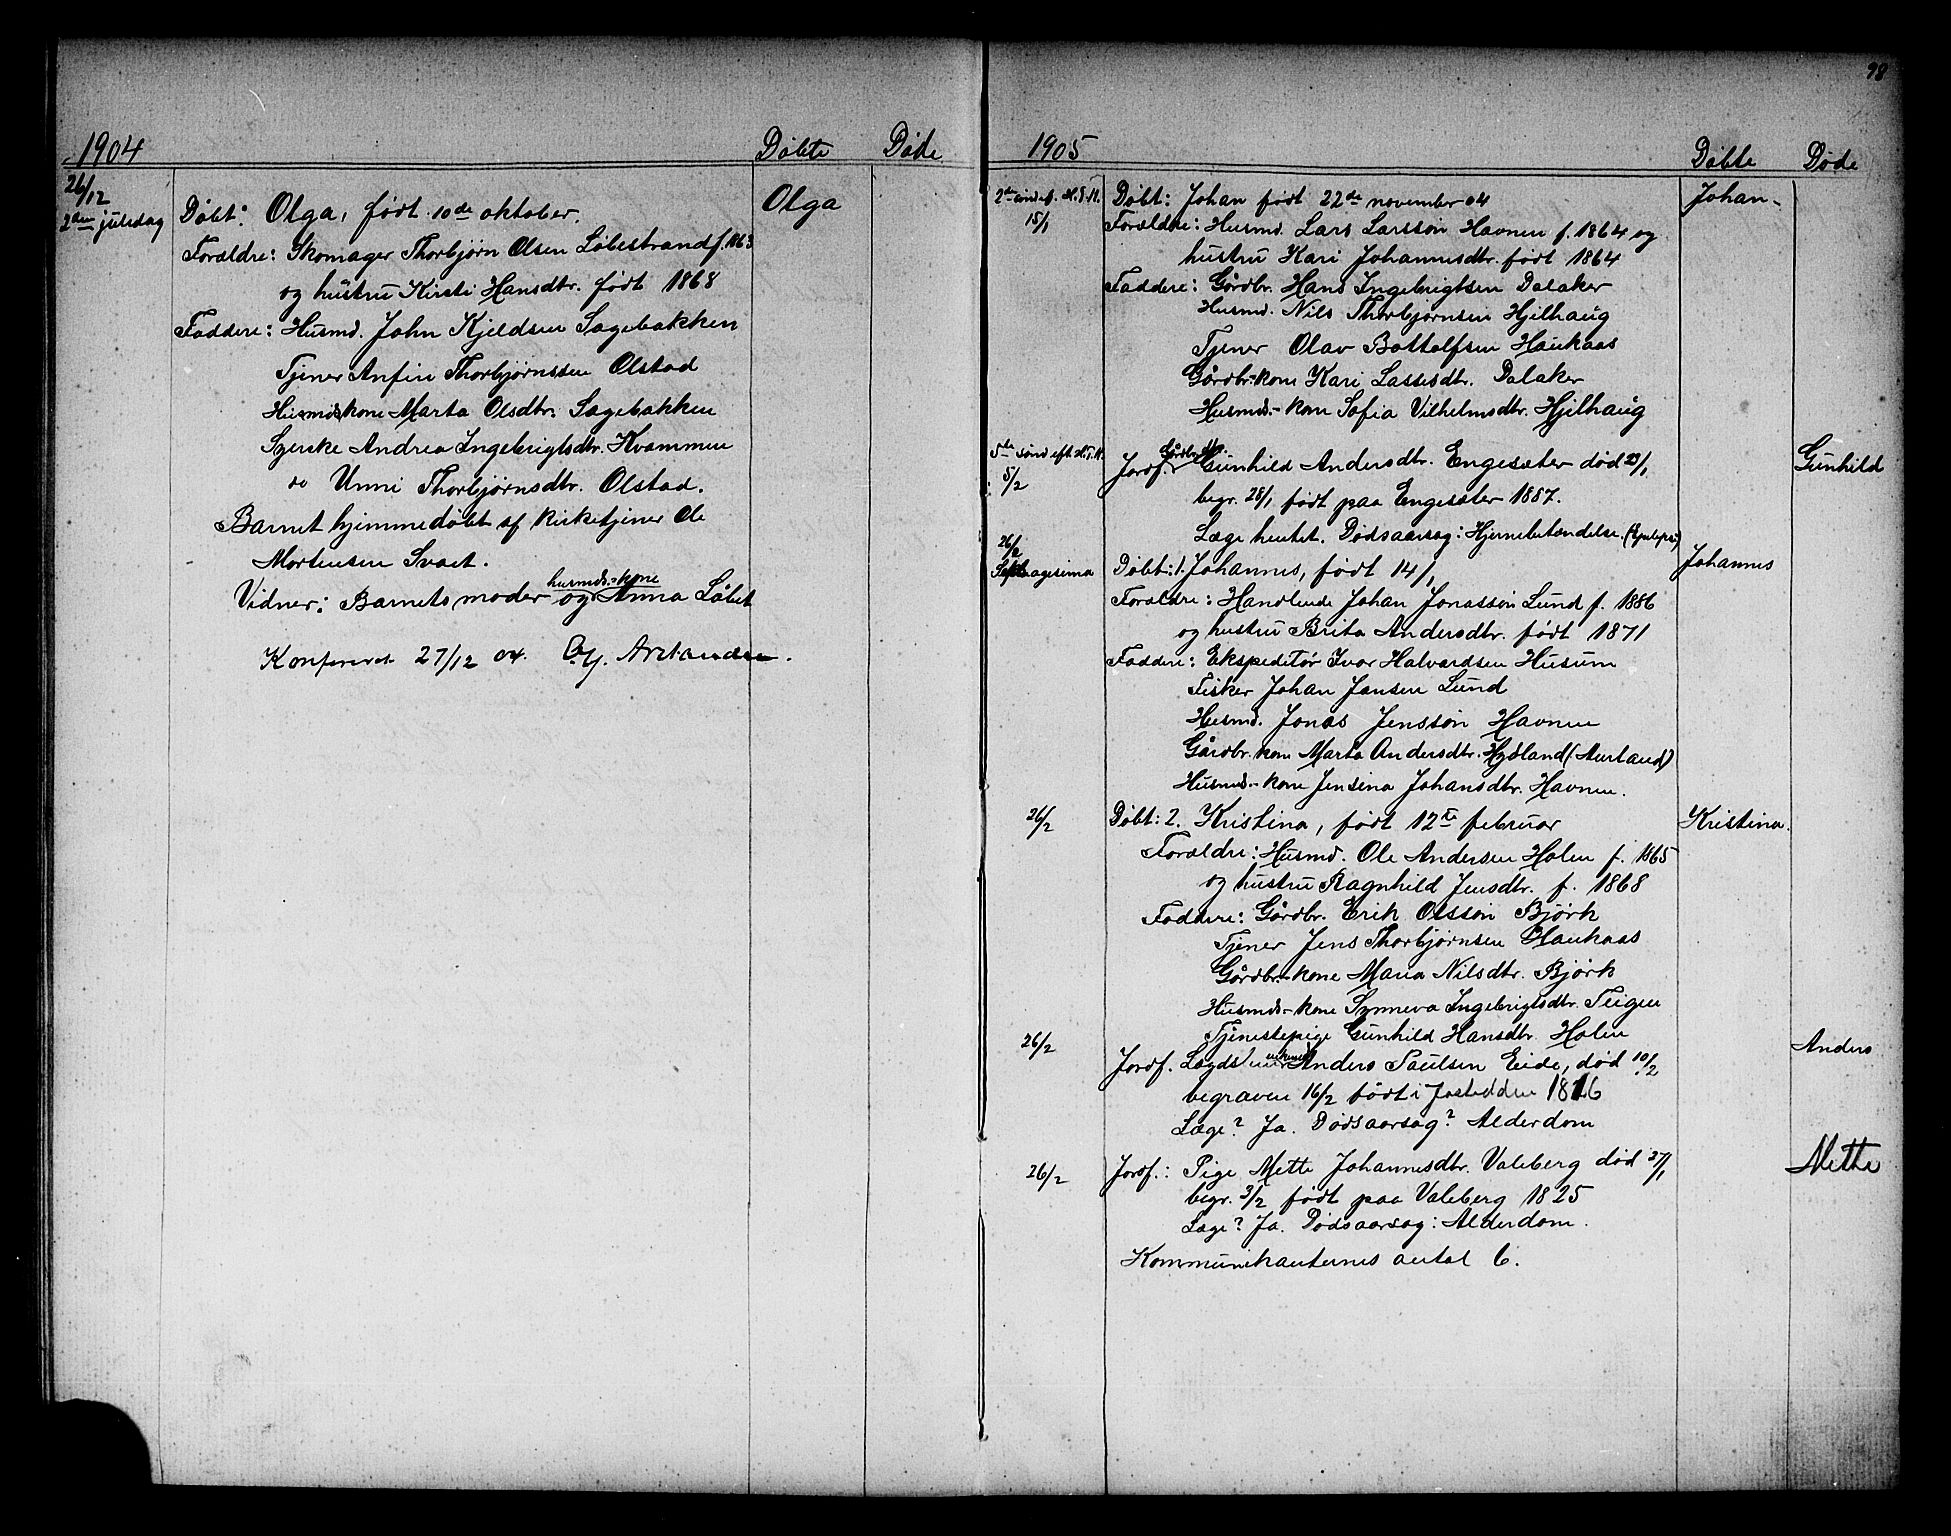 1904
Döbte Döde
26/12
2den juledag
Döbt: Olga, født 10de oktober.
Olga
Forældre: Skomager Thorbjørn Olsen Løbestrand f. 1863
og hustru Kirsti Hansdtr. født 1868
Faddere: Husmd. John Kjeldsen Sagebakken
Tjener Anfin Thorbjørnssen Olstad
Husmdskone Marta Olsdtr. Sagebakken
Syerske Andrea Ingebrigtsdtr. Kvammen
do Unni Thorbjørnsdtr. Olstad.
Barnet hjemmedøbt af kirketjener Ole
Mortensen Svaet.
husmds.-kone
Vidner: Barnets moder og Anna Løbet
Konfereret 27/12 04.
98
1905
Döbte Döde
2den søndag. H.3.K.
15/1
Döbt: Johan født 22de november 04
Johan
Forældre: Husmd. Lars Larsson Havnen f. 1864 og
hustru Kari Johannesdtr. født 1864
Faddere: Gårdbr. Hans Ingebrigtsen Dalaker
Husmd. Nils Thorbjørnsen Hjelhaug
Tjener Olav Bottolfsen Haukaas
Gårdbr.-kone Kari Lassesdtr. Dalaker
Husmd.-kone Sofia Vilhelmsdtr. Hjelhaug
5te sønd eft. H.3.K.
5/2
Jordf. Gårdbr. Gunhild Andersdtr. Engesæter død 23/1
Gunhild
begr. 28/1 født paa Engesæter 1887.
Læge hentet. Dødsaarsag: Hjernebetændelse. (Epilepsi)
26/2
Seksagesima
Döbt: 1. Johannes, født 14/1
Johannes
Forældre: Handlende Johan Jonasson Lund f. 1886
og hustru Brita Andersdtr. født 1871
Faddere: Ekspeditør Ivar Halvardsen Husum
Fisker Johan Jansen Lund
Husmd. Jonas Jensson Havnen
Gårdbr. kone Marta Andersdtr. Hydland (Aurland)
Husmd.- kone Jensina Johansdtr. Havnen.
26/2
Döbt: 2. Kristina, født 12te februar
Kristina.
Forældre: Husmd. Ole Andersen Holen f. 1865
og hustru Ragnhild Jensdtr. f. 1868
Faddere: Gårdbr. Erik Olsson Björk
Tjener Jens Thorbjørnsen Haukaas
Gårdbr.-kone Maria Nilsdtr. Björk
Husmds-kone Synneva Ingebrigtsdtr. Teigen
Tjenestepige Gunhild Hansdtr. Holen
26/2
Jordf. Lægds Anders Paulsen Eide, død 10/2
Anders
begraven 16/2 født i Jostedalen 1816
Læge? Ja. Dødsaarsag? Alderdom
26/2
Jordf.: Pige Mette Johannesdtr. Valeberg død 27/1
Mette
begr. 3/2 født paa Valeberg 1825
Læge? Ja. Dødsaarsag: Alderdom.
Kommunikanternes antal 6.